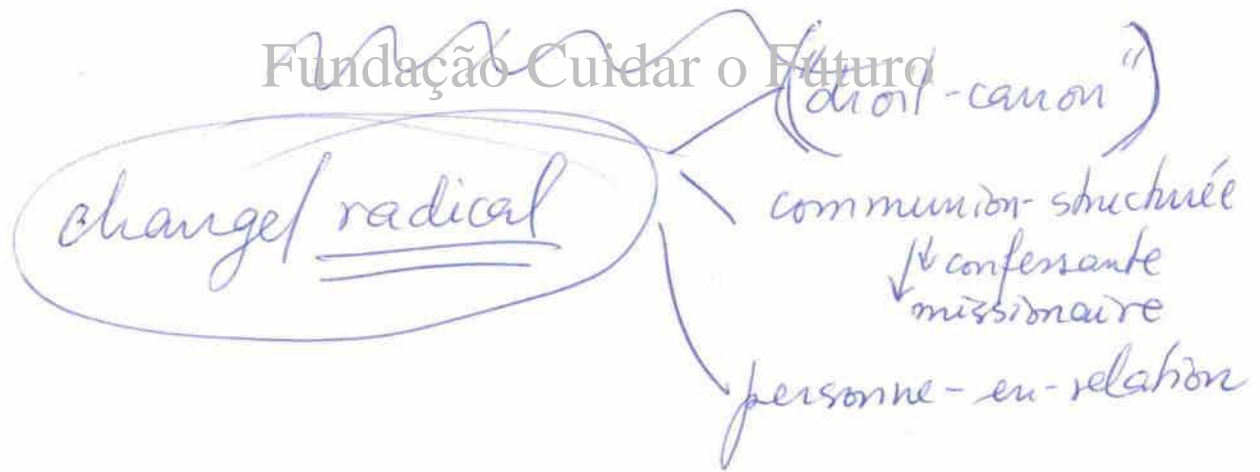 Fundação Cuidar o Futuro
("droit-canon")
changet radical
communion-structurée
confessante
missionnaire
personne-en-relation